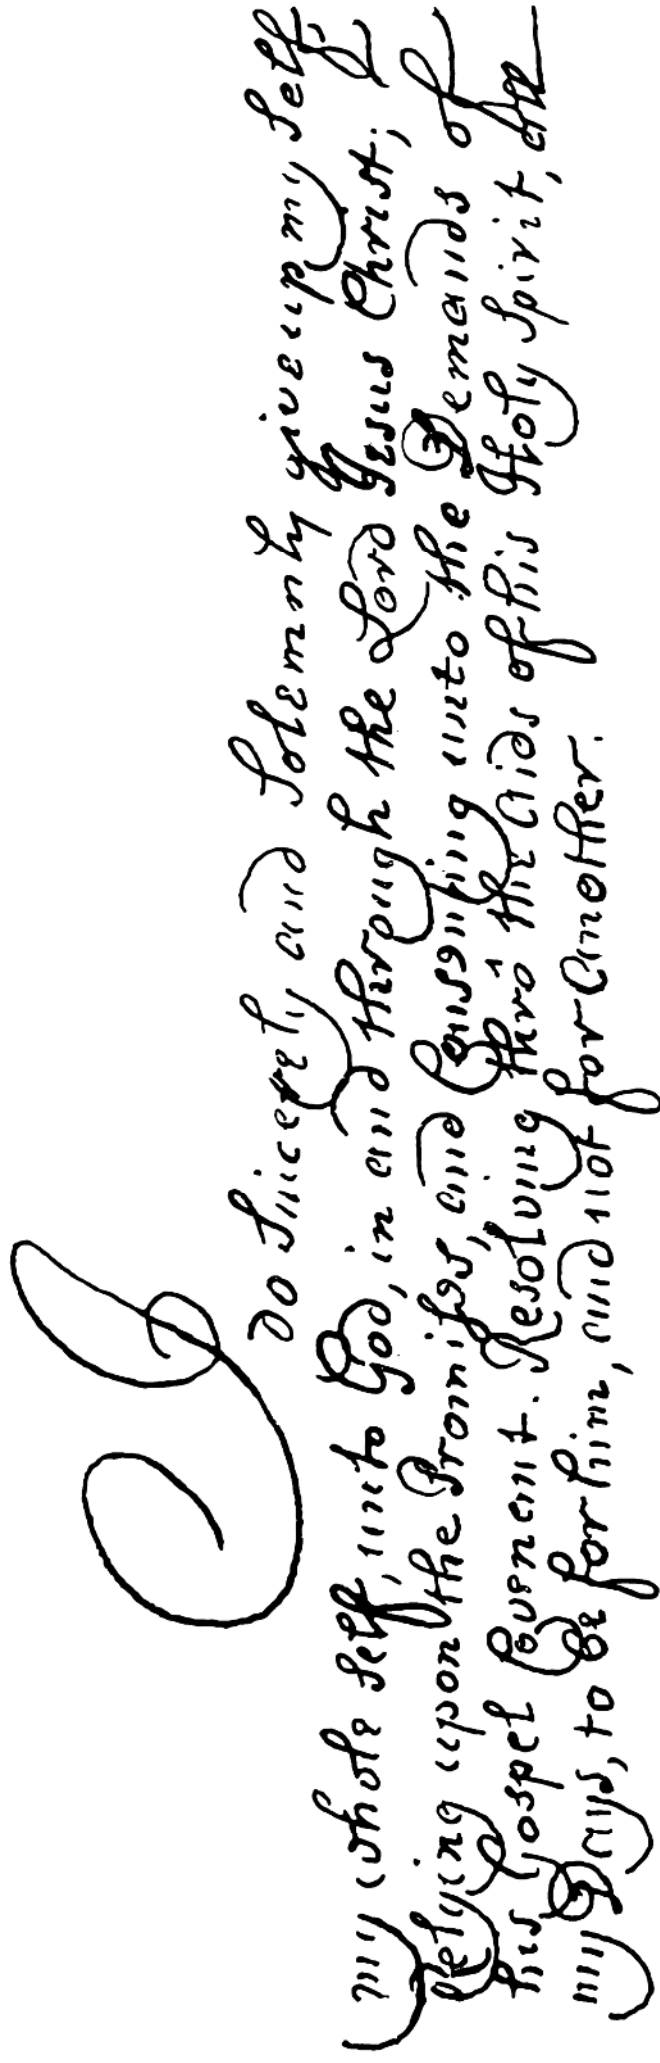 I do Sincerely and Solemnly give up my Self,
my whole Self, unto God, in and through the Lord Jesus Christ;
Relying upon the Promises, and Consenting unto the Demands of
his Gospel Covenant. Resolving thrô the Aids of his Holy Spirit, all
my Days, to be for him, and not for Another.